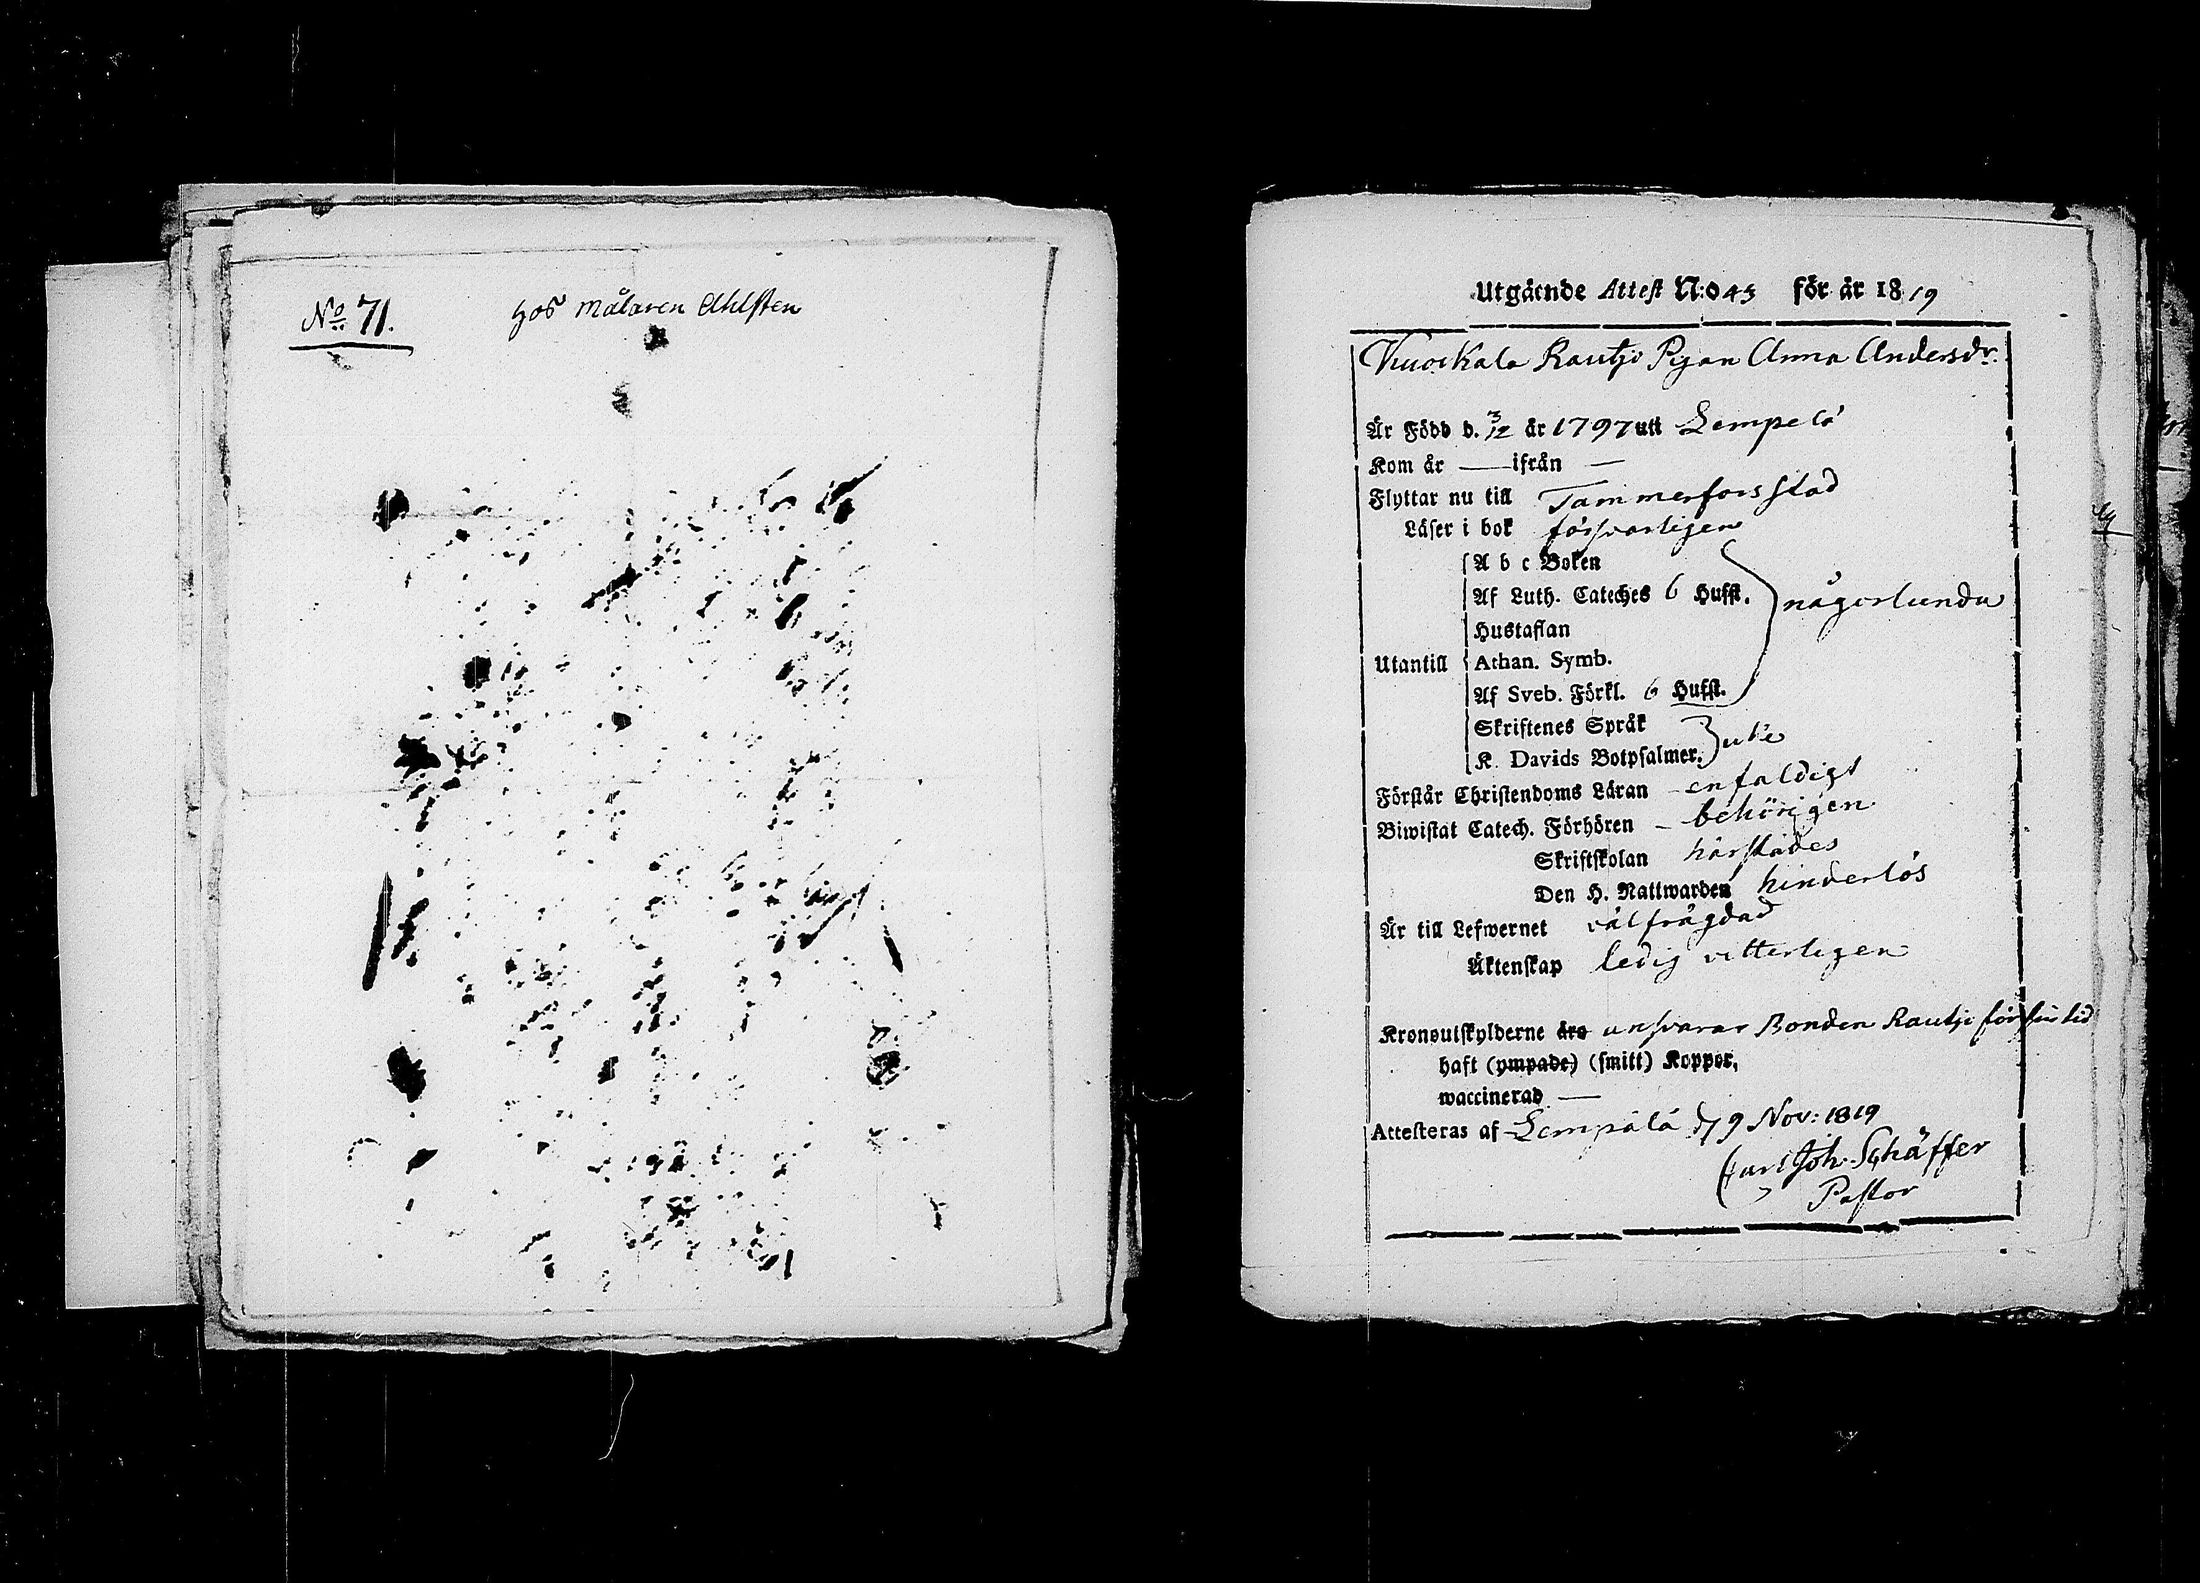 No 71.
hos Målaren Ahlsten
Utgående Attest N:o 43 för år 1819
Kuockala Rautji Pigan Anna Andersdr.
Är Född d. 3/12 år 1797 uti Lempelä
Kom år — ifrån —
Flyttar nu till Tammerfors stad
Läser i bok försvarligen
A b c Boken
Af Luth. Cateches 6 Hufst. någorlunda
Hustaflan
Utantill Athan. Symb.
Af Sveb. Förkl. 6 Hufst.
Skriftenes Språk
K. Davids Botpsalmer. icke
Förstår Christendoms Läran enfaldigt
Biwistat Catech. Förhören – behörigen
Skriftskolan härstädes
Den H. Nattwarden hinderlös
Är till Lefwernet välfrägdad
Äktenskap ledig vitterligen
Kronoutskylderne äro ansvarar Bonden Rautji för sin tid
haft (ympade) (smitt) Koppor,
waccinerad —
Attesteras af Lempälä d 9 Nov: 1819
Carl Joh. Schäffer
Pastor